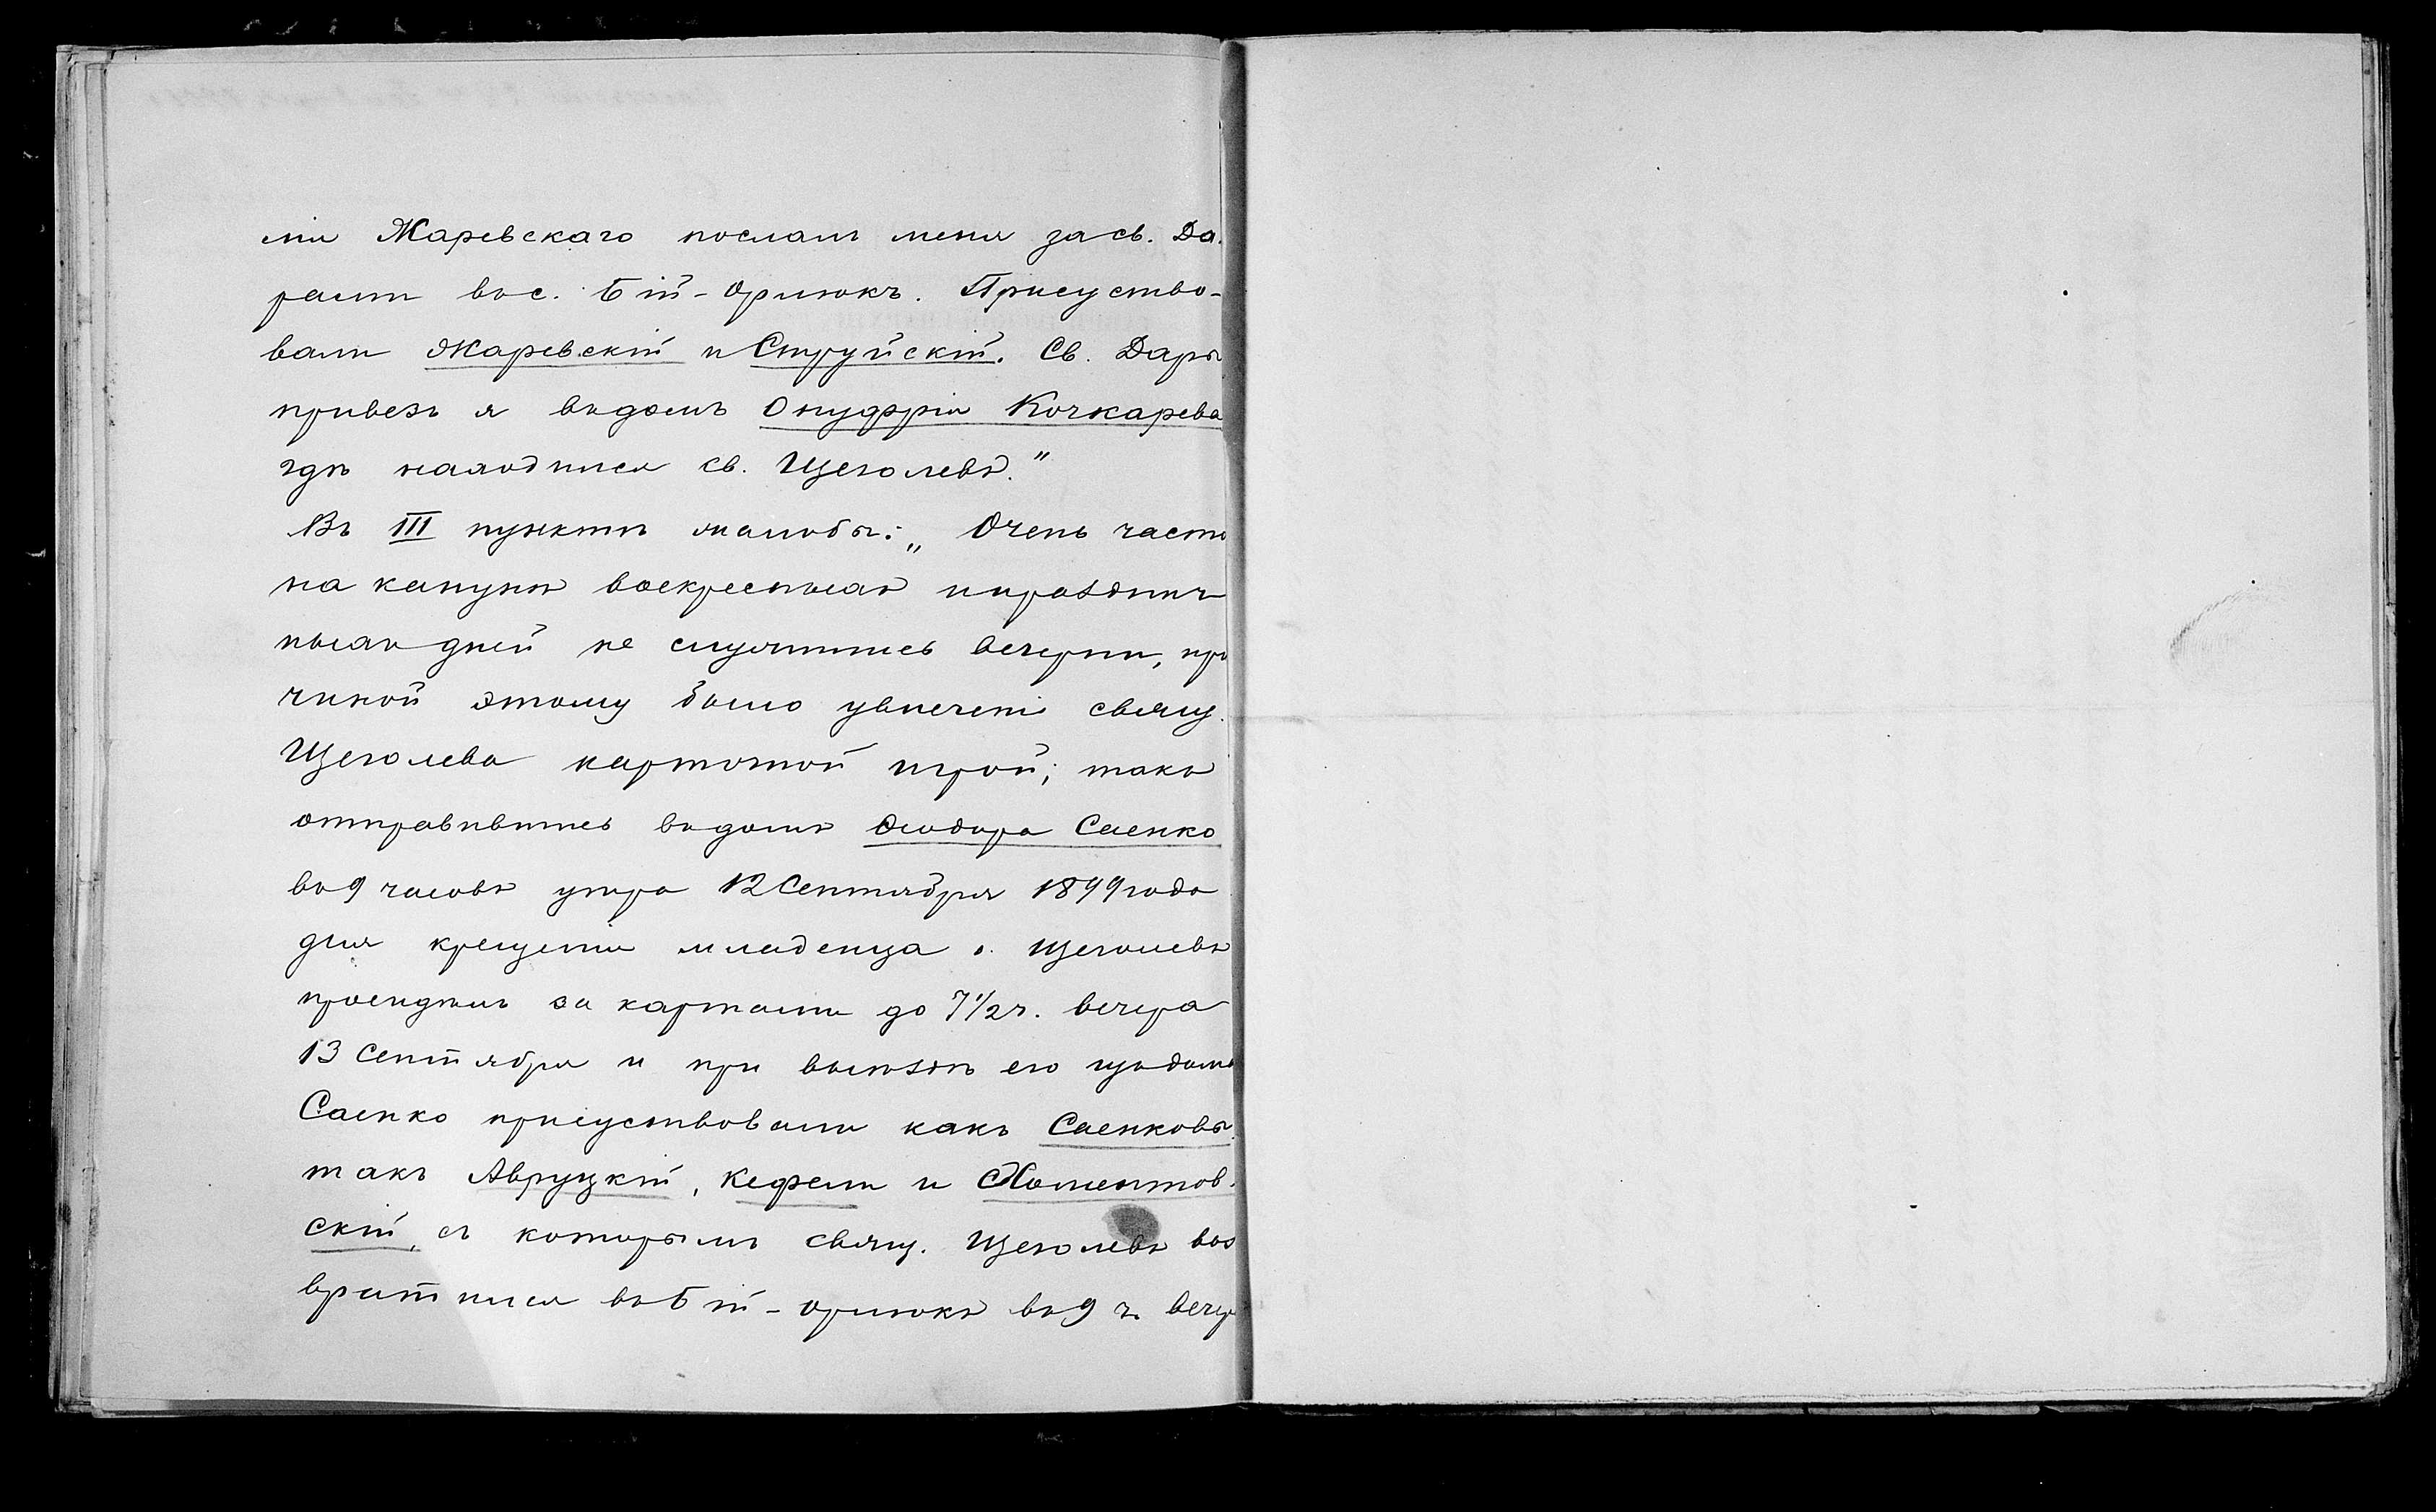 міи Жаревскаго послалъ меня за св. Да-
рами въ с. Бій-Орлюкъ. Присуство-
вали Жаревскій и Струйскій. Св. Дары
привезъ я въ домъ Онуфрія Кочкарева
гдѣ находился св. Щеголевъ."
Въ III пунктѣ жалобы: „Очень часто
на канунѣ воскресныхъ и празднич
ныхъ дней не служились вечерни, при
чиной этому было увлеченіе свящ.
Щеголева карточной игрой; такъ
отправившись въ домъ Ѳеодора Саенко
въ 9 часовъ утра 12 Сентября 1899 года
для крещенія младенца о. Щеголевъ
просидѣлъ за картами до 7 1/2 ч. вечера
13 Сентября и при выѣздѣ его изъ дома
Саенко присуствовали какъ Саенковы
такъ Авруцкій, Кефели и Хоментов-
скій, съ которымъ свящ. Щеголевъ воз
вратился въ Бій-орлюкъ въ 9 ч. вечера